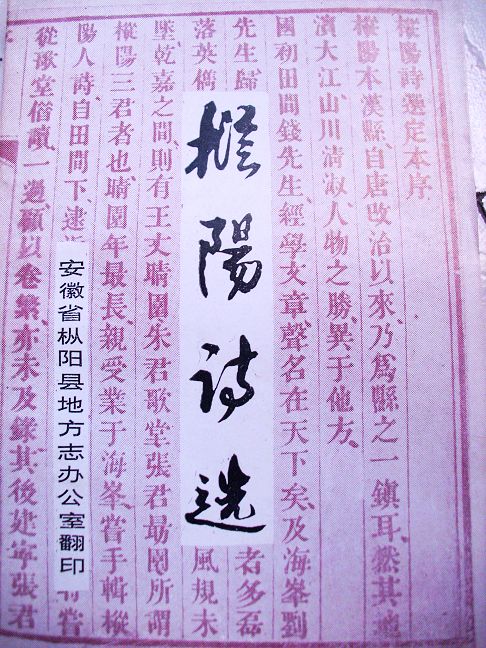 樅陽詩選定本序
樅陽本漢縣自唐改治以來乃爲縣之一鎮耳然其地
濱大江山川淸淑人物之勝異于他方
國初田間錢先生經學文章聲名在天下矣及海峯劉
先生歸
者多磊
落英儁
風規未
墜乾嘉之間則有王丈晴園朱君歌堂張君勗園所謂
樅陽三君者也晴園年最長親受業于海峯嘗手輯樅
陽人詩自田間下逮
嘗
從豫堂借讀一過顧以卷繁亦未及錄其後建寧張君
樅陽诗选
安徽省枞阳县地方志办公室翻印